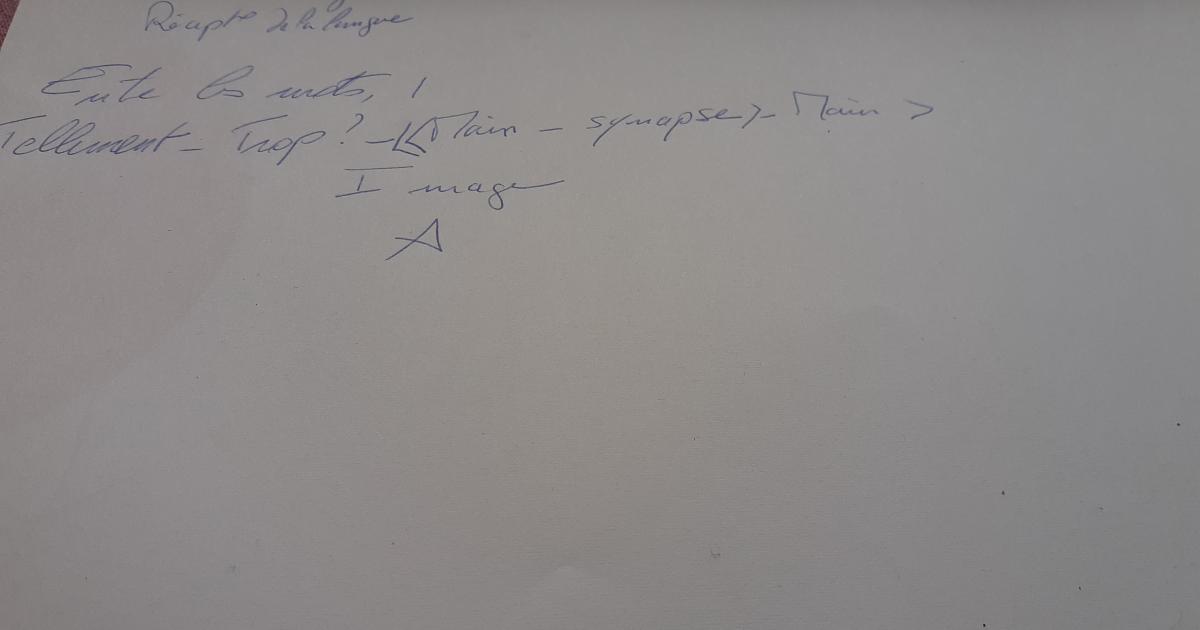 de la langue
Ente les mots, !
Tellement - Trop ? - << Main - synapse > - Main >
Image
A